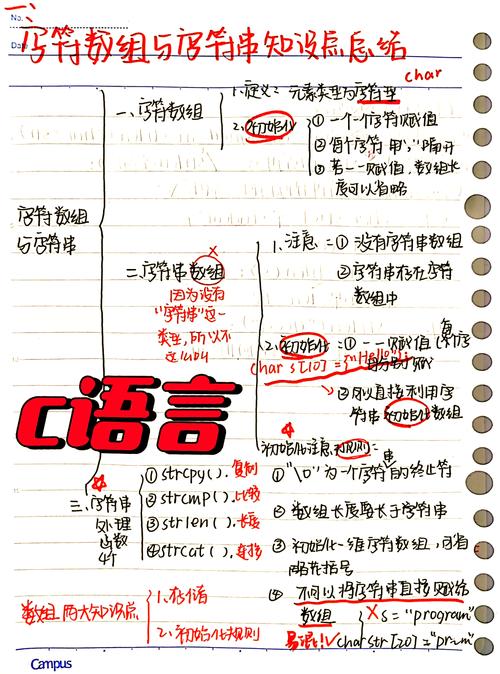 一、
No.
Date
字符数组与字符串知识点总结
char
字符数组
与字符串
一、字符数组
1.定义：元素类型为字符型
2.初始化
① 一个个字符赋值
② 每个字符用","隔开
③ 若一一赋值，数组长
度可以省略
二、字符串数组
X
因为没有
"字符串"这一
类型，所以不
1.注意：① 没有字符串数组
② 字符串存在字符
数组中
2.初始化：① 一一赋值
char s[10]={"Hello"};
② 可以直接利用字
符串初始化数组
初始化注意规则：
① "\0"为一个字符串的终止符
② 数组长度要长于字符串
③ 初始化一维字符数组，可省
略花括号
④ 不可以将字符串直接赋给
数组 X s="program"
易混!√ char str[20]=
c语言
三、字符串
处理
函数
4个
① strcpy().复制
② strcmp().比较
③ strlen().长度
④ strcat().连接
数组两大知识点
1.存储
2.初始化规则
Campus